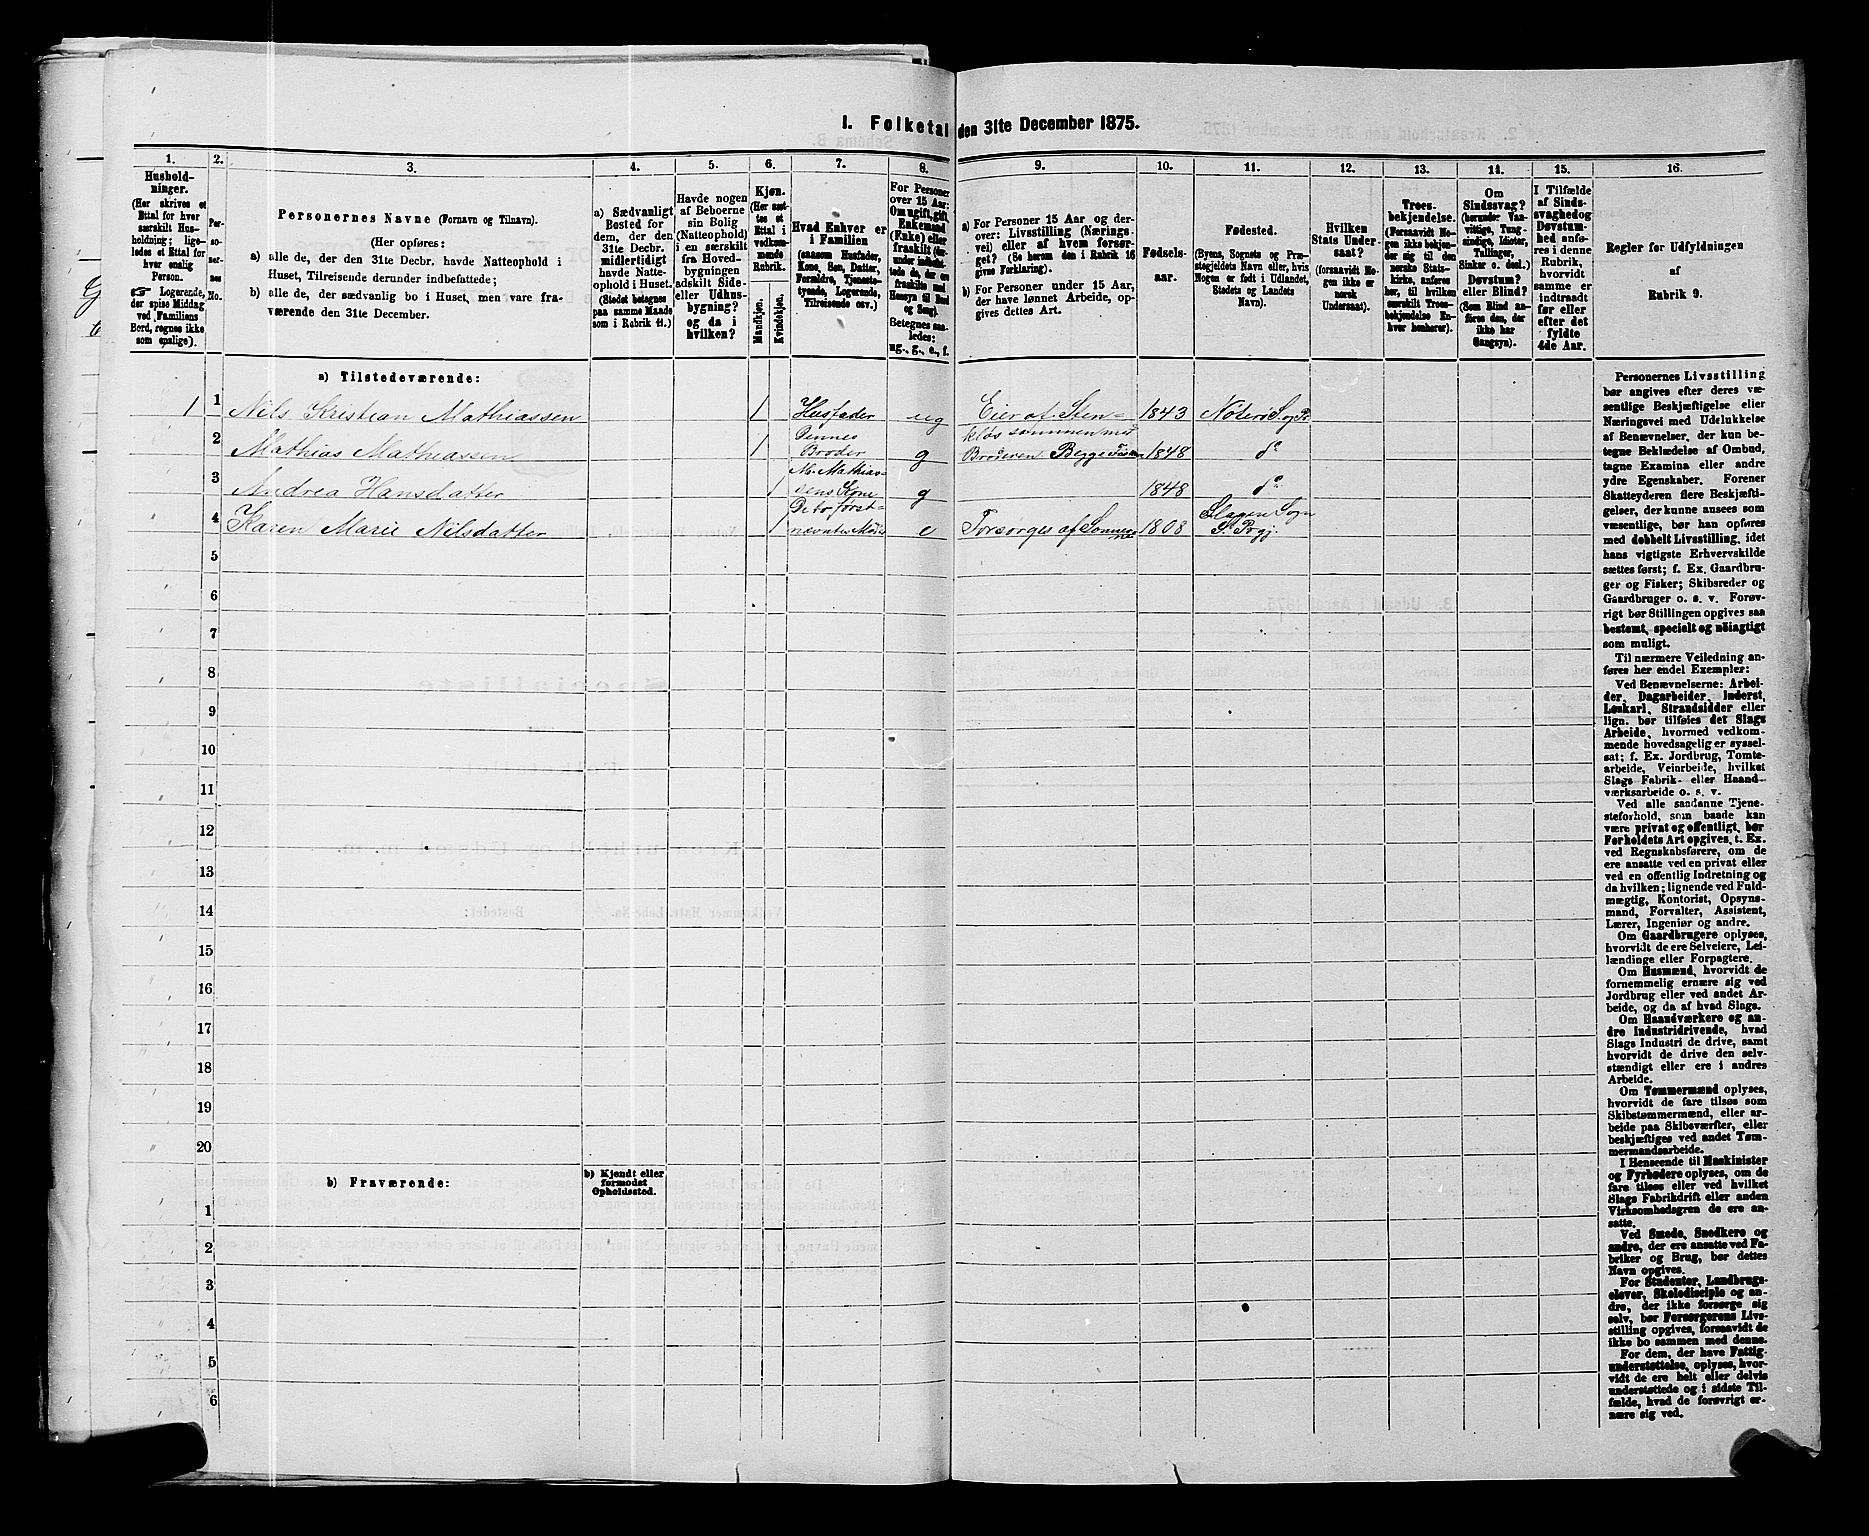 I. Folketal den 31te December 1875.
1.
Hushold-
ninger.
(Her skrives et
Ettal for hver
særskilt Hus-
holdning; lige-
ledes et Ettal for
hver enslig
Person.
☞ Logerende,
der spise Middag
ved Familiens
Bord, regnes ikke
som enslige).
2.
Per-
so-
ner-
nes
No.
3.
Personernes Navne (Fornavn og Tilnavn).
(Her opføres:
a) alle de, der den 31te Decbr. havde Natteophold i
Huset, Tilreisende derunder indbefattede;
b) alle de, der sædvanlig bo i Huset, men vare fra-
værende den 31te December.
4.
a) Sædvanligt
Bosted for
dem, der den
31te Decbr.
midlertidigt
havde Natte-
ophold i Huset.
(Stedet betegnes
paa samme Maade
som i Rubrik 11.)
5.
Havde nogen
af Beboerne
sin Bolig
(Natteophold)
i en særskilt
fra Hoved-
bygningen
adskilt Side-
eller Udhus-
bygning?
og da i
hvilken?
6.
Kjøn.
(Her sæt-
tes et
Ettal i
vedkom-
mende
Rubrik.
Mandkjøn.
Kvindekjøn.
7.
Hvad Enhver er
i Familien
(saasom Husfader,
Kone, Søn, Datter,
Forældre, Tjeneste-
tyende, Logerende,
Tilreisende osv.)
8.
For Personer
over 15 Aar:
Om ugift, gift,
Enkemand
(Enke) eller
fraskilt (der-
under indbefat-
tede de, der ere
fraskilte med
Hensyn til Bord
og Seng).
Betegnes saa-
ledes:
ug., g., e., f.
9.
a) For Personer 15 Aar og der-
over: Livsstilling (Nærings-
vei) eller af hvem forsør-
get? (Se herom den i Rubrik 16
givne Forklaring).
b) For Personer under 15 Aar,
der have lønnet Arbeide, op-
gives dettes Art.
10.
Fødsels-
aar.
11.
Fødested.
(Byens, Sognets og Præ-
stegjeldets Navn eller, hvis
Nogen er født i Udlandet,
Stedets og Landets
Navn).
12.
Hvilken
Stats Under-
saat?
(forsaavidt No-
gen ikke er
norsk
Undersaat).
13.
Troes-
bekjendelse.
(Forsaavidt No-
gen ikke bekjen-
der sig til den
norske Stats-
kirke, anføres
her, til hvilken
særskilt Troes-
bekjendelse En-
hver henhører).
14.
Om
Sindssvag?
(herunder Van-
vittige, Tung-
sindige, Idioter,
Tullinger,
Sinker o. desl.)
Døvstum?
eller Blind?
(Som Blind an-
føres den, der
ikke har
Gangsyn).
15.
I Tilfælde
af Sinds-
svaghed og
Døvstum-
hed anfø-
res i denne
Rubrik,
hvorvidt
samme er
indtraadt
før eller
efter det
fyldte
4de Aar.
16.
Regler for Udfyldningen
af
Rubrik 9.
a) Tilstedeværende:
1 1 Nils Kristian Mathiassen 1 Husfader ug Eier af Sten= 1843 Noterø S. og Pr.
2 Mathias Mathiassen 1 Dennes Broder g kløs sammen med Broderen Begge Fisker 1848 do
3 Andrea Hansdatter 1 M. Mathias= sens Kone g 1848 do
4 Karen Marie Nilsdatter 1 De to først= nævntes Moder e Forsørges af Sønnerne 1808 Slagen Sogn S. Prgj.
5
6
7
8
9
10
11
12
13
14
15
16
17
18
19
20
b) Fraværende:
b) Kjendt eller
formodet
Opholdssted.
1
2
3
4
5
6
Personernes Livsstilling
bør angives efter deres væ-
sentlige Beskjæftigelse eller
Næringsvei med Udelukkelse
af Benævnelser, der kun be-
tegne Beklædelse af Ombud,
tagne Examina eller andre
ydre Egenskaber. Forener
Skatteyderen flere Beskjæfti-
gelser, der kunne ansees som
væsentlige, bør han opføres
med dobbelt Livsstilling, idet
hans vigtigste Erhvervskilde
sættes først; f. Ex. Gaardbru-
ger og Fisker; Skibsreder og
Gaardbruger o. s. v. Forøv-
rigt bør Stillingen opgives saa
bestemt, specielt og nøiagtigt
som muligt.
Til nærmere Veiledning an-
føres her endel Exempler:
Ved Benævnelserne: Arbei-
der, Dagarbeider, Inderst,
Løskarl, Strandsidder eller
lign. bør tilføies det Slags
Arbeide, hvormed vedkom-
mende hovedsagelig er syssel-
sat; f. Ex. Jordbrug, Tomte-
arbeide, Veiarbeide, hvilket
Slags Fabrik- eller Haand-
værksarbeide o. s. v.
Ved alle saadanne Tjene-
steforhold, som baade kan
være privat og offentligt, bør
Forholdets Art opgives, t. Ex.
ved Regnskabsførere, om de
ere ansatte ved en privat eller
ved en offentlig Indretning og
da hvilken; lignende ved Fuld-
mægtig, Kontorist, Opsyns-
mand, Forvalter, Assistent,
Lærer, Ingeniør og andre.
Om Gaardbrugere oplyses,
hvorvidt de ere Selveiere, Lei-
lændinge eller Forpagtere.
Om Husmænd, hvorvidt de
fornemmelig ernære sig ved
Jordbrug eller ved andet Ar-
beide, og da af hvad Slags.
Om Haandværkere og an-
dre Industridrivende, hvad
Slags Industri de drive, samt
hvorvidt de drive den selv-
stændigt eller ere i andres
Arbeide.
Om Tømmermænd oplyses,
hvorvidt de fare tilsøs som
Skibstømmermænd, eller ar-
beide paa Skibsværfter, eller
beskjæftiges ved andet Tøm-
mermandsarbeide.
I Henseende til Maskinister
og Fyrbødere oplyses, om de
fare tilsøs eller ved hvilket
Slags Fabrikdrift eller anden
Virksomhedsgren de ere an-
satte.
Ved Smede, Snedkere og
andre, der ere ansatte ved Fa-
briker og Brug, bør dettes
Navn opgives.
For Studenter, Landbrugs-
elever, Skoledisciple og an-
dre, der ikke forsørge sig
selv, bør Forsørgerens Livs-
stilling opgives, forsaavidt de
ikke bo sammen med denne.
For dem, der have Fattig-
understøttelse, oplyses, hvor-
vidt de ere helt eller delvis
understøttede og i sidste Til-
fælde, hvad de forøvrigt er-
nære sig ved.